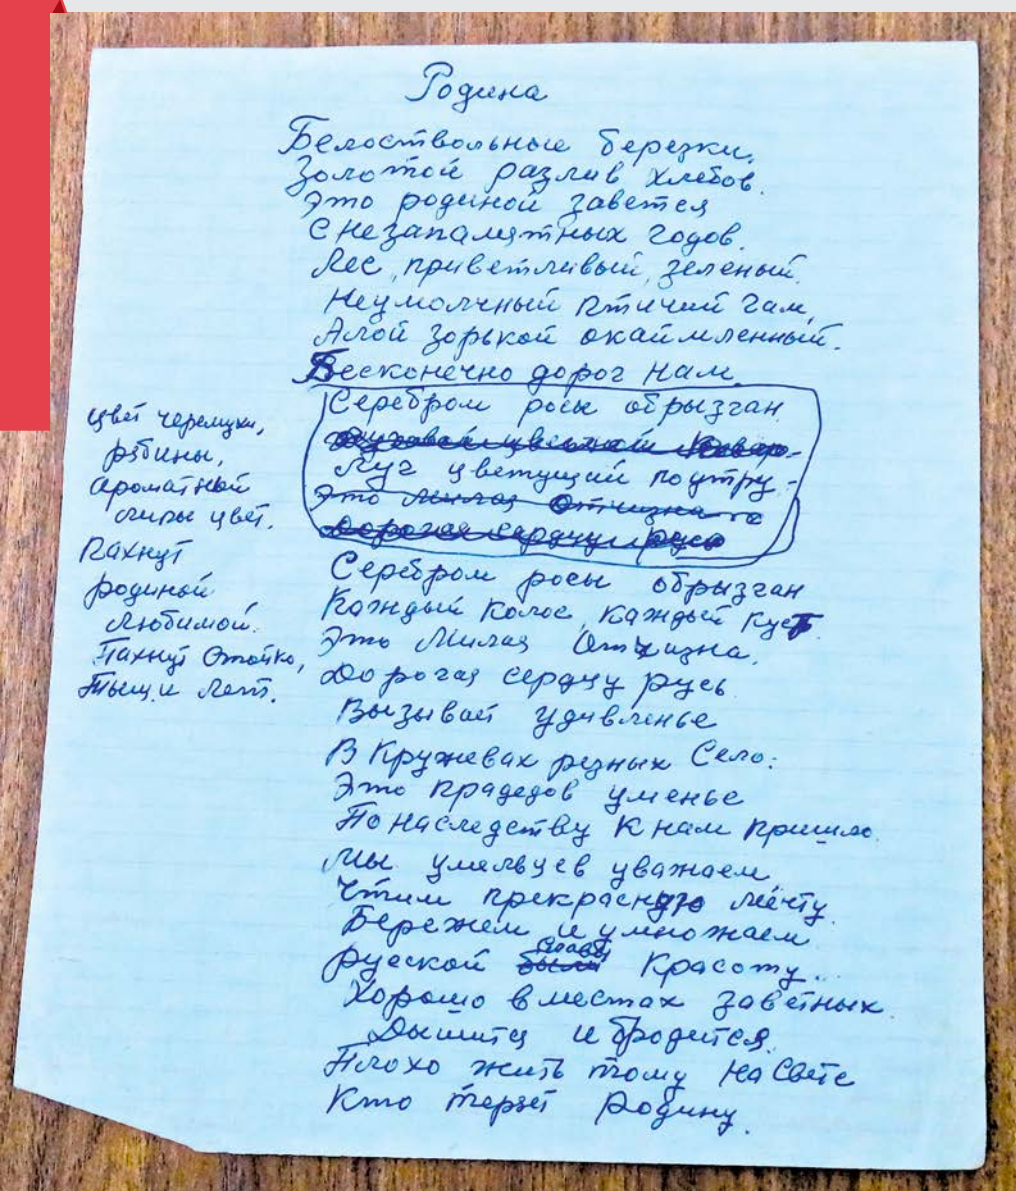 Родина
Белоствольные березки.
Золотой разлив хлебов.
Это родиной завется
С незапамятных годов.
Лес, приветливый, зеленый.
Неумолчный птичий гам,
Алой зорькой окаймленный.
Бесконечно дорог нам.
Серебром росы обрызган
Луг цветущий поутру. -
Это милая Отчизна
Дорогая сердцу русь
Серебром росы обрызган
Каждый колос, каждый куст.
Это Милая Отчизна.
Дорогая сердцу русь.
Вызывает удивленье
В Кружевах резных Село:
Это прадедов уменье
По наследству к нам пришло.
Мы умельцев уважаем
Чтим прекрасную мечту.
Бережем и умножаем
славы
русской были Красоту..
Хорошо в местах заветных.
Дышится и бродится.
Плохо жить тому на свете
Кто теряет Родину.
Цвет черемухи,
рябины,
ароматной
липы цвет.
Пахнут
родиной
любимой.
Пахнут стойко,
Тыщи лет.